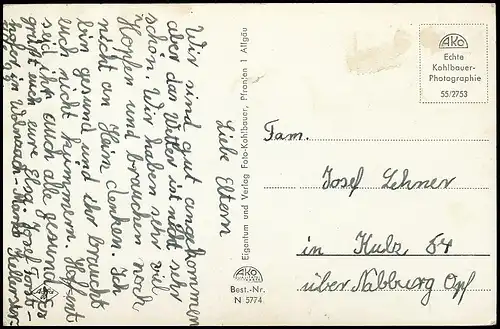 Liebe Eltern
Wir sind gut angekommen
aber das Wetter ist nicht sehr
schön. Wir haben sehr viel
Hopfen und brauchen noch
nicht an Heim denken. Ich
bin gesund und ihr braucht
euch nicht kümmern. Hoffent
seid ihr auch alle gesund. Es
grüßt euch eure Elsa. Josef
in Wolnzach-Markt
Eigentum und Verlag Foto-Kohlbauer, Pfronten 1 Allgäu
AKO
Best.-Nr.
N 5774
AKO
Echte
Kohlbauer-
Photographie
55/2753
Fam.
Josef Lehner
in Kulz, 64
über Nabburg Opf
Agfa